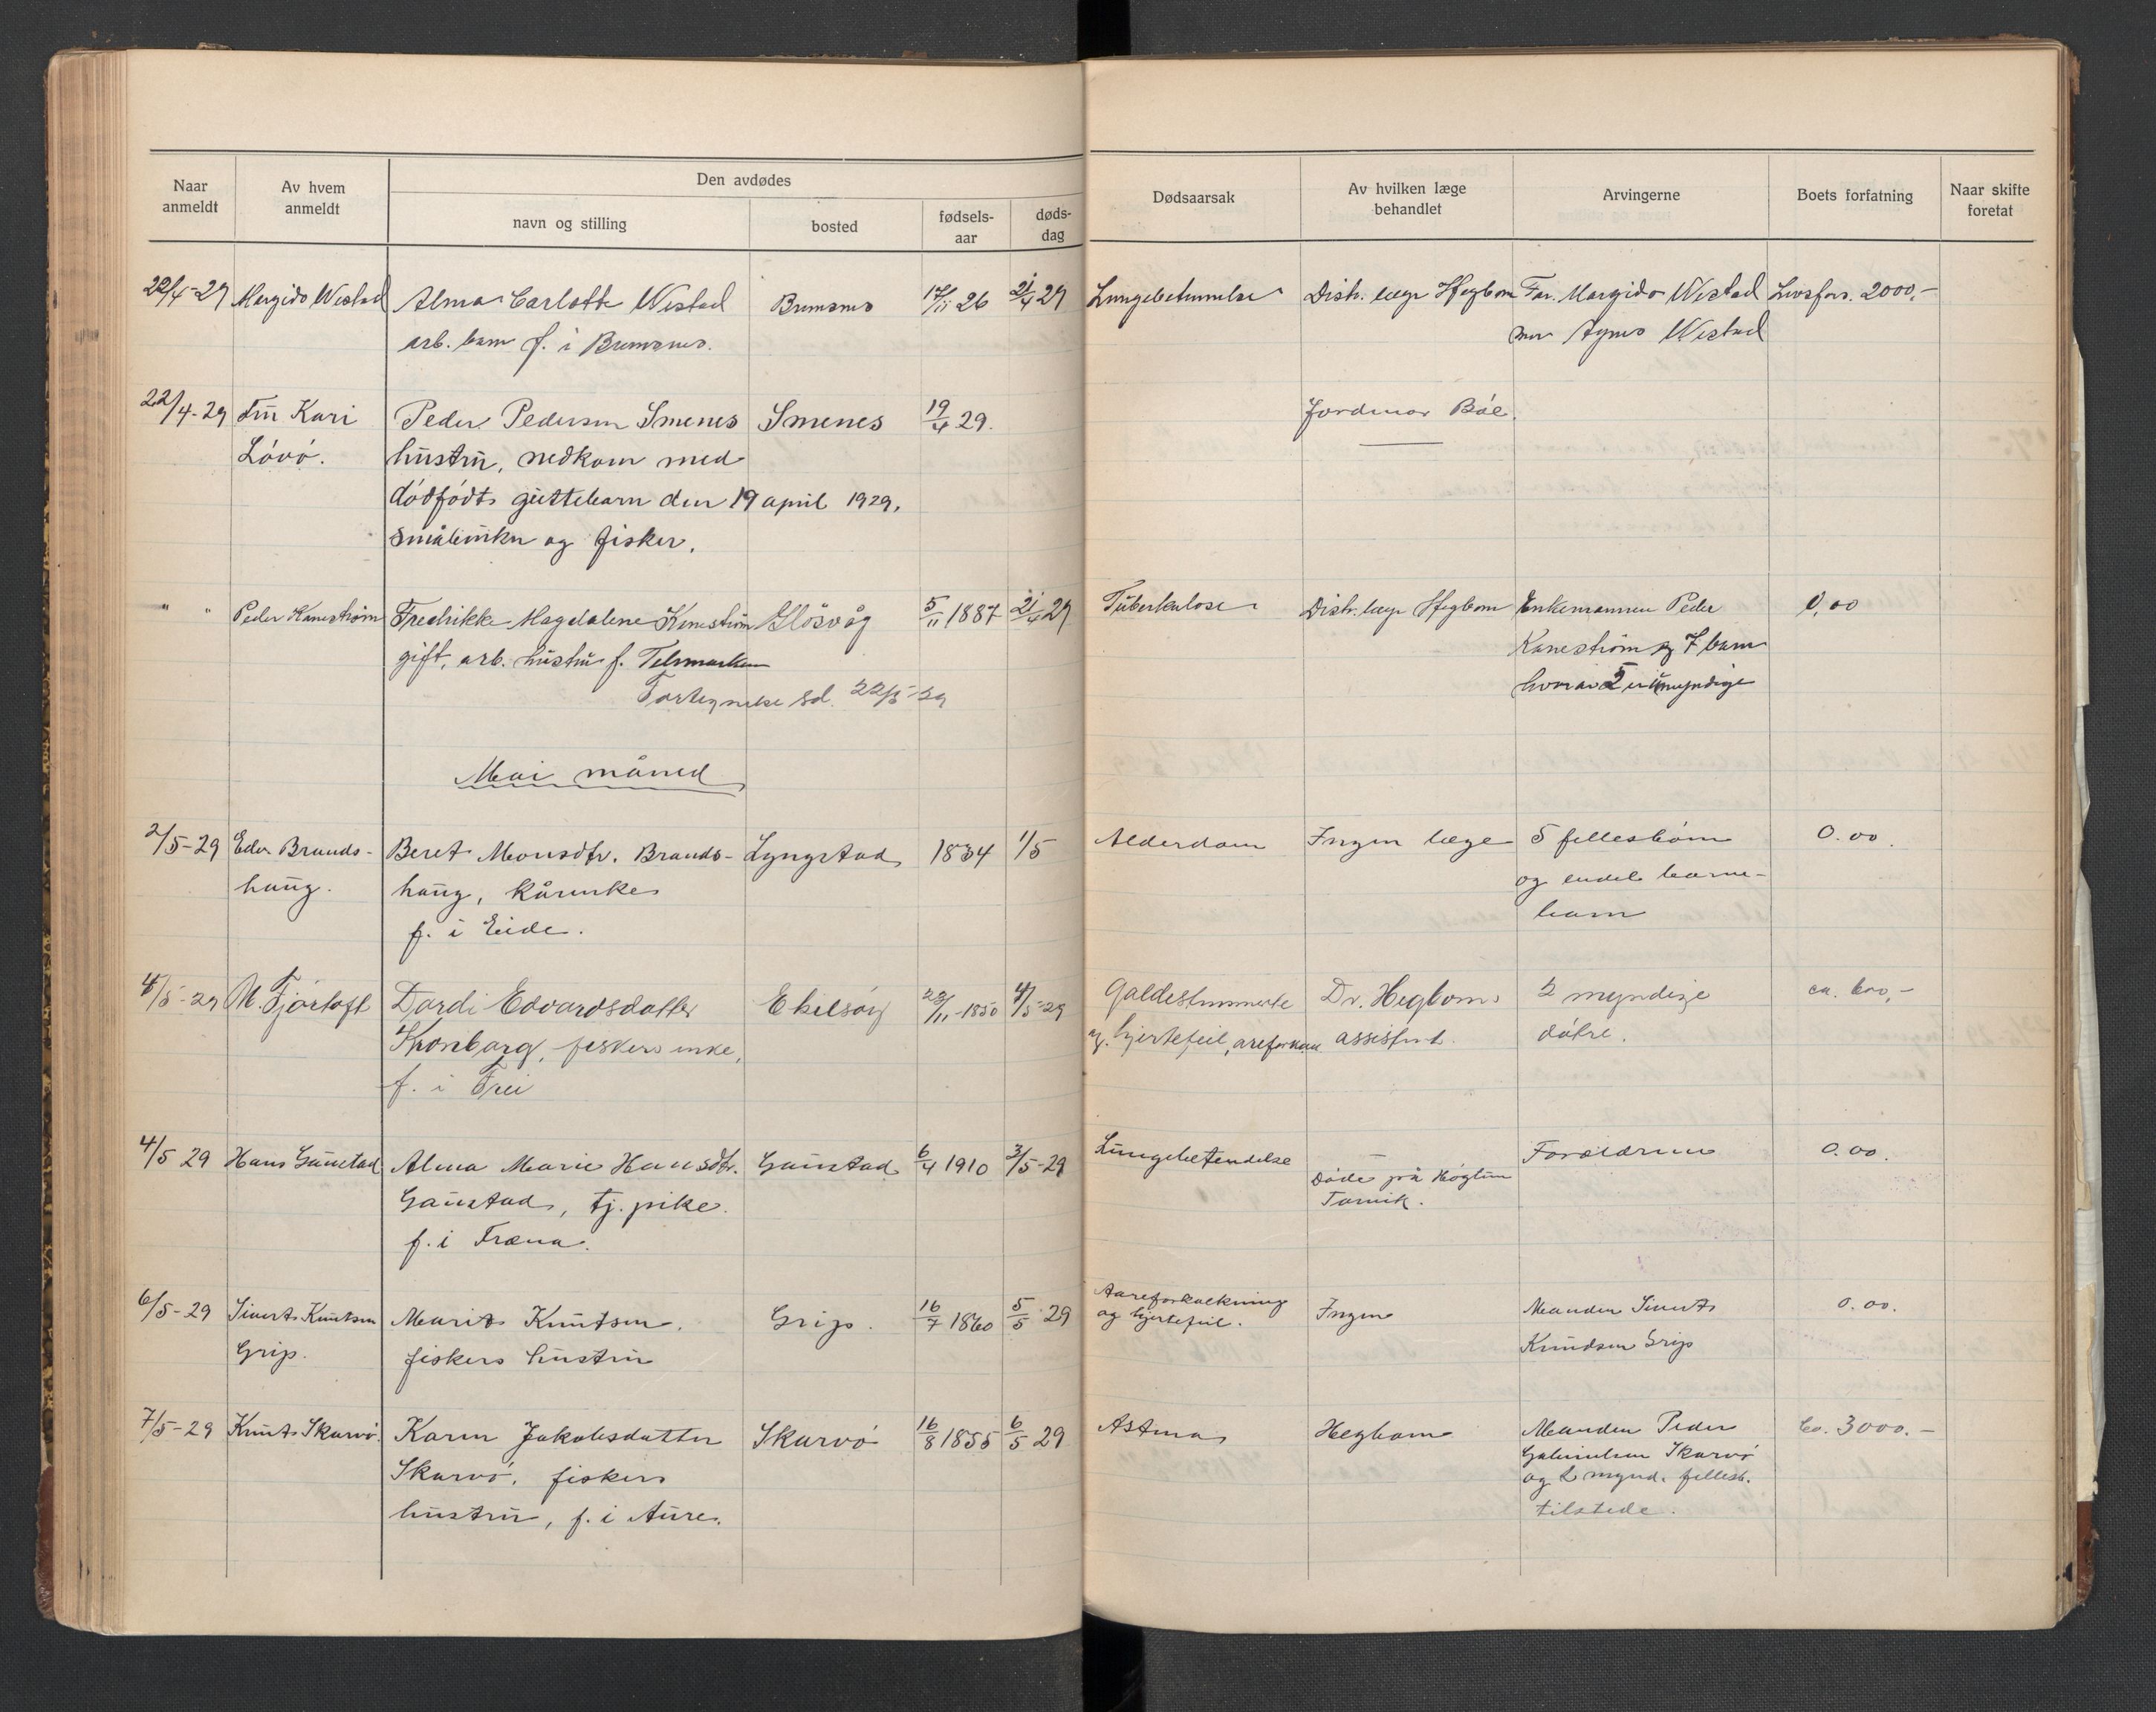 Naar anmeldt
Av hvem anmeldt
Den avdødes
navn og stilling
bosted
fødsels-aar
døds-dag
Dødsaarsak
Av hvilken læge behandlet
Arvingerne
Boets forfatning
Naar skifte foretat
22/4-29 Margido Westad Alma Carlotte Westad Bremsnes 17/11 26 21/4 29 Lungebetennelse Distr. læge Hegbom Far. Margido Westad Livsfors. 2000,-
arb. barn f. i Bremsnes. mor Agnes Westad
22/4-29 Fru Kari Peder Pedersen Smenes Smenes 19/4 29. Jordmor Bøe.
Løvø. hustru, nedkom med
dødfødt guttebarn den 19 april 1929.
småbruker og fisker.
" " Peder Kanestrøm Fredrikke Magdalene Kanestrøm Gløsvåg 5/11 1887 21/4 29 Tuberkulose Distr. læge Hegbom Enkemannen Peder 0,00
gift, arb. hustru f. Telemarken Kanestrøm og 7 barn
Fortegnelse sd. 22/5-29 hvorav 5 er umyndige
Mai måned
2/5-29 Eder Brands- Beret Monsdtr. Brands- Lyngstad 1834 1/5 Alderdom Ingen læge 5 fellesbørn 0.00.
haug. haug, kårenke og endel barne-
f. i Eide. barn
4/5-29 M. Fjørtoft Dordi Edvardsdatter Ekilsøy 29/11-1850 4/5-29 Galdestensmerte Dr. Hegboms 2 myndige ca. 600,-
Kronborg, fiskers enke, og hjertefeil, assistent. døtre.
f. i Frei
4/5 29 Hans Gaustad Alma Marie Hansdtr. Gaustad 6/4 1910 3/5-29 Lungebetendelse Døde på Foreldrene 0.00.
Gaustad, tj. pike. Tornvik.
f. i Fræna.
6/5-29 Sivert Knutsen Marit Knutsen. Grip. 16/7 1860 5/5-29 Aareforkalkning Ingen Manden Sivert 0.00.
Grip. fiskers hustru og hjertefeil. Knudsen Grip
7/5-29 Knut Skarvø. Karen Jakobsdatter Skarvø 16/8 1855 6/5 29 Astma Hegbom Manden Peder Ca. 3000.-
Skarvø, fiskers Skarvø
hustru, f. i Aure. og 2 mynd. fellesb.
tilstede.